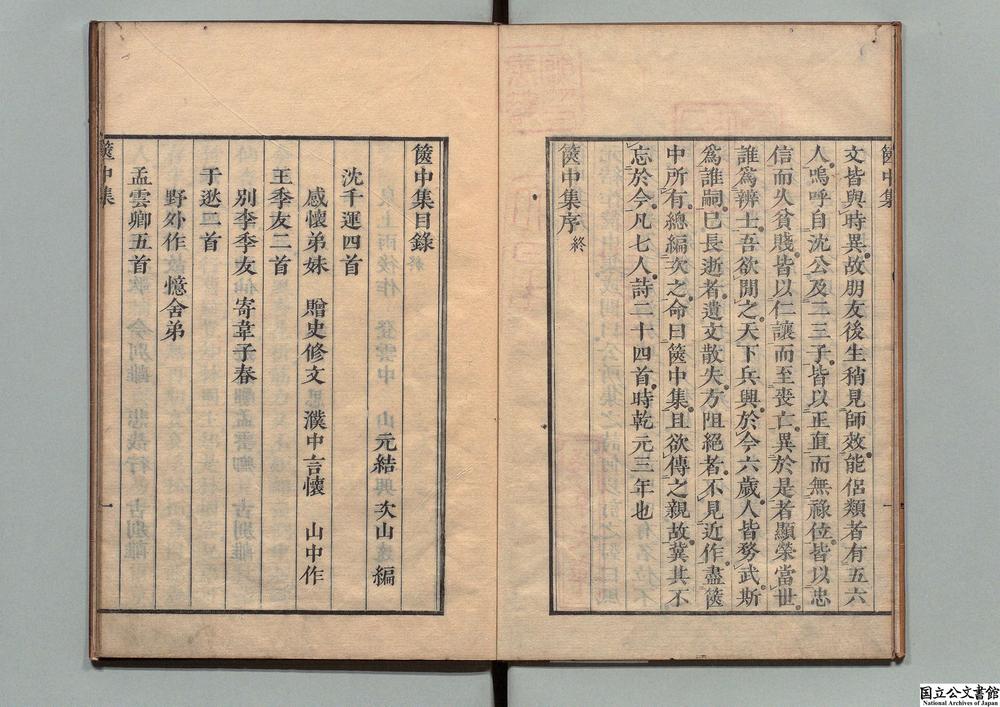 篋中集
文皆與時異故朋友後生稍見師效能侶類者有五六
人嗚呼自沈公及二三子皆以正直而無祿位皆以忠
信而久貧賤皆以仁讓而至喪亡異於是者顯榮當世
誰爲辨士吾欲問之天下兵興於今六歲人皆務武斯
爲誰嗣已長逝者遺文散失方阻絕者不見近作盡篋
中所有總編次之命曰篋中集且欲傳之親故冀其不
忘於今凡七人詩二十四首時乾元三年也
篋中集序終
篋中集目錄
元結次山編
沈千運四首
感懷弟妹 贈史修文 濮中言懷 山中作
王季友二首
別李季友 寄韋子春
于逖二首
野外作 憶舍弟
孟雲卿五首
篋中集
一
国立公文書館
National Archives of Japan